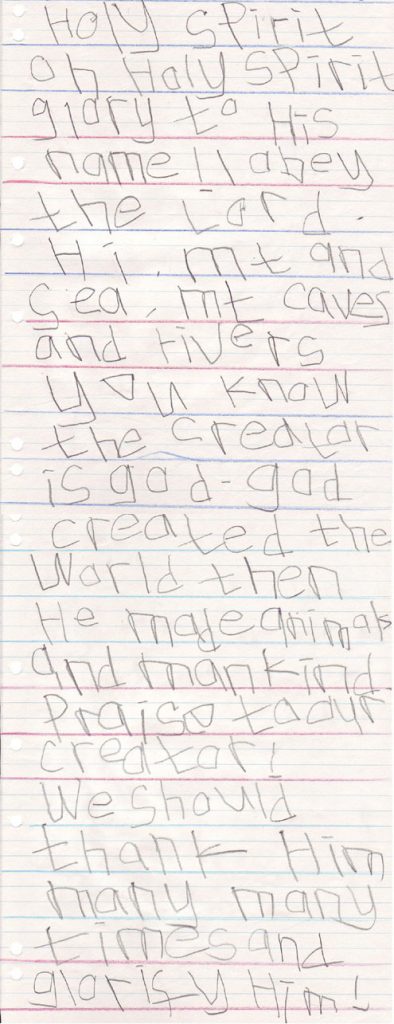 Holy spirit
oh Holy spirit
glory to His
name I abey
the Lord.
Hi, mt and
sea, mt caves
and rivers
you know
the creator
is god-god
created the
World then
He made animals
and mankind
Praise to our
creator!
We should
thank Him
many many
times and
glorify Him!